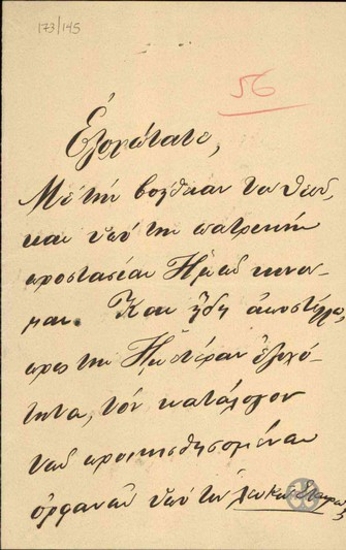 173/145
56
Ἐξοχώτατε,
Μὲ τὴν βοήθειαν τοῦ Θεοῦ,
καὶ ὑπὸ τὴν πατρικὴν
προστασίαν Ἡμῶν
μαι. Καὶ ἤδη ἀποστέλλω,
πρὸς τὴν Ἡμετέραν ἐξοχό-
τητα, τὸν κατάλογον
τῶν προικισθησομένων
ὀρφανῶν ὑπὸ τοῦ